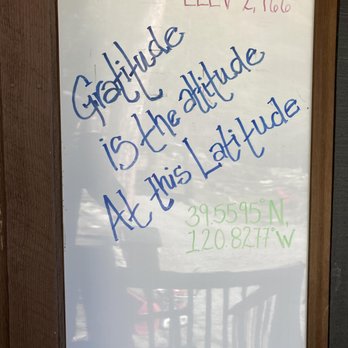 ELEV 2,766
Gratitude
is the attitude
At this Latitude
39.5595°N,
120.8277°W